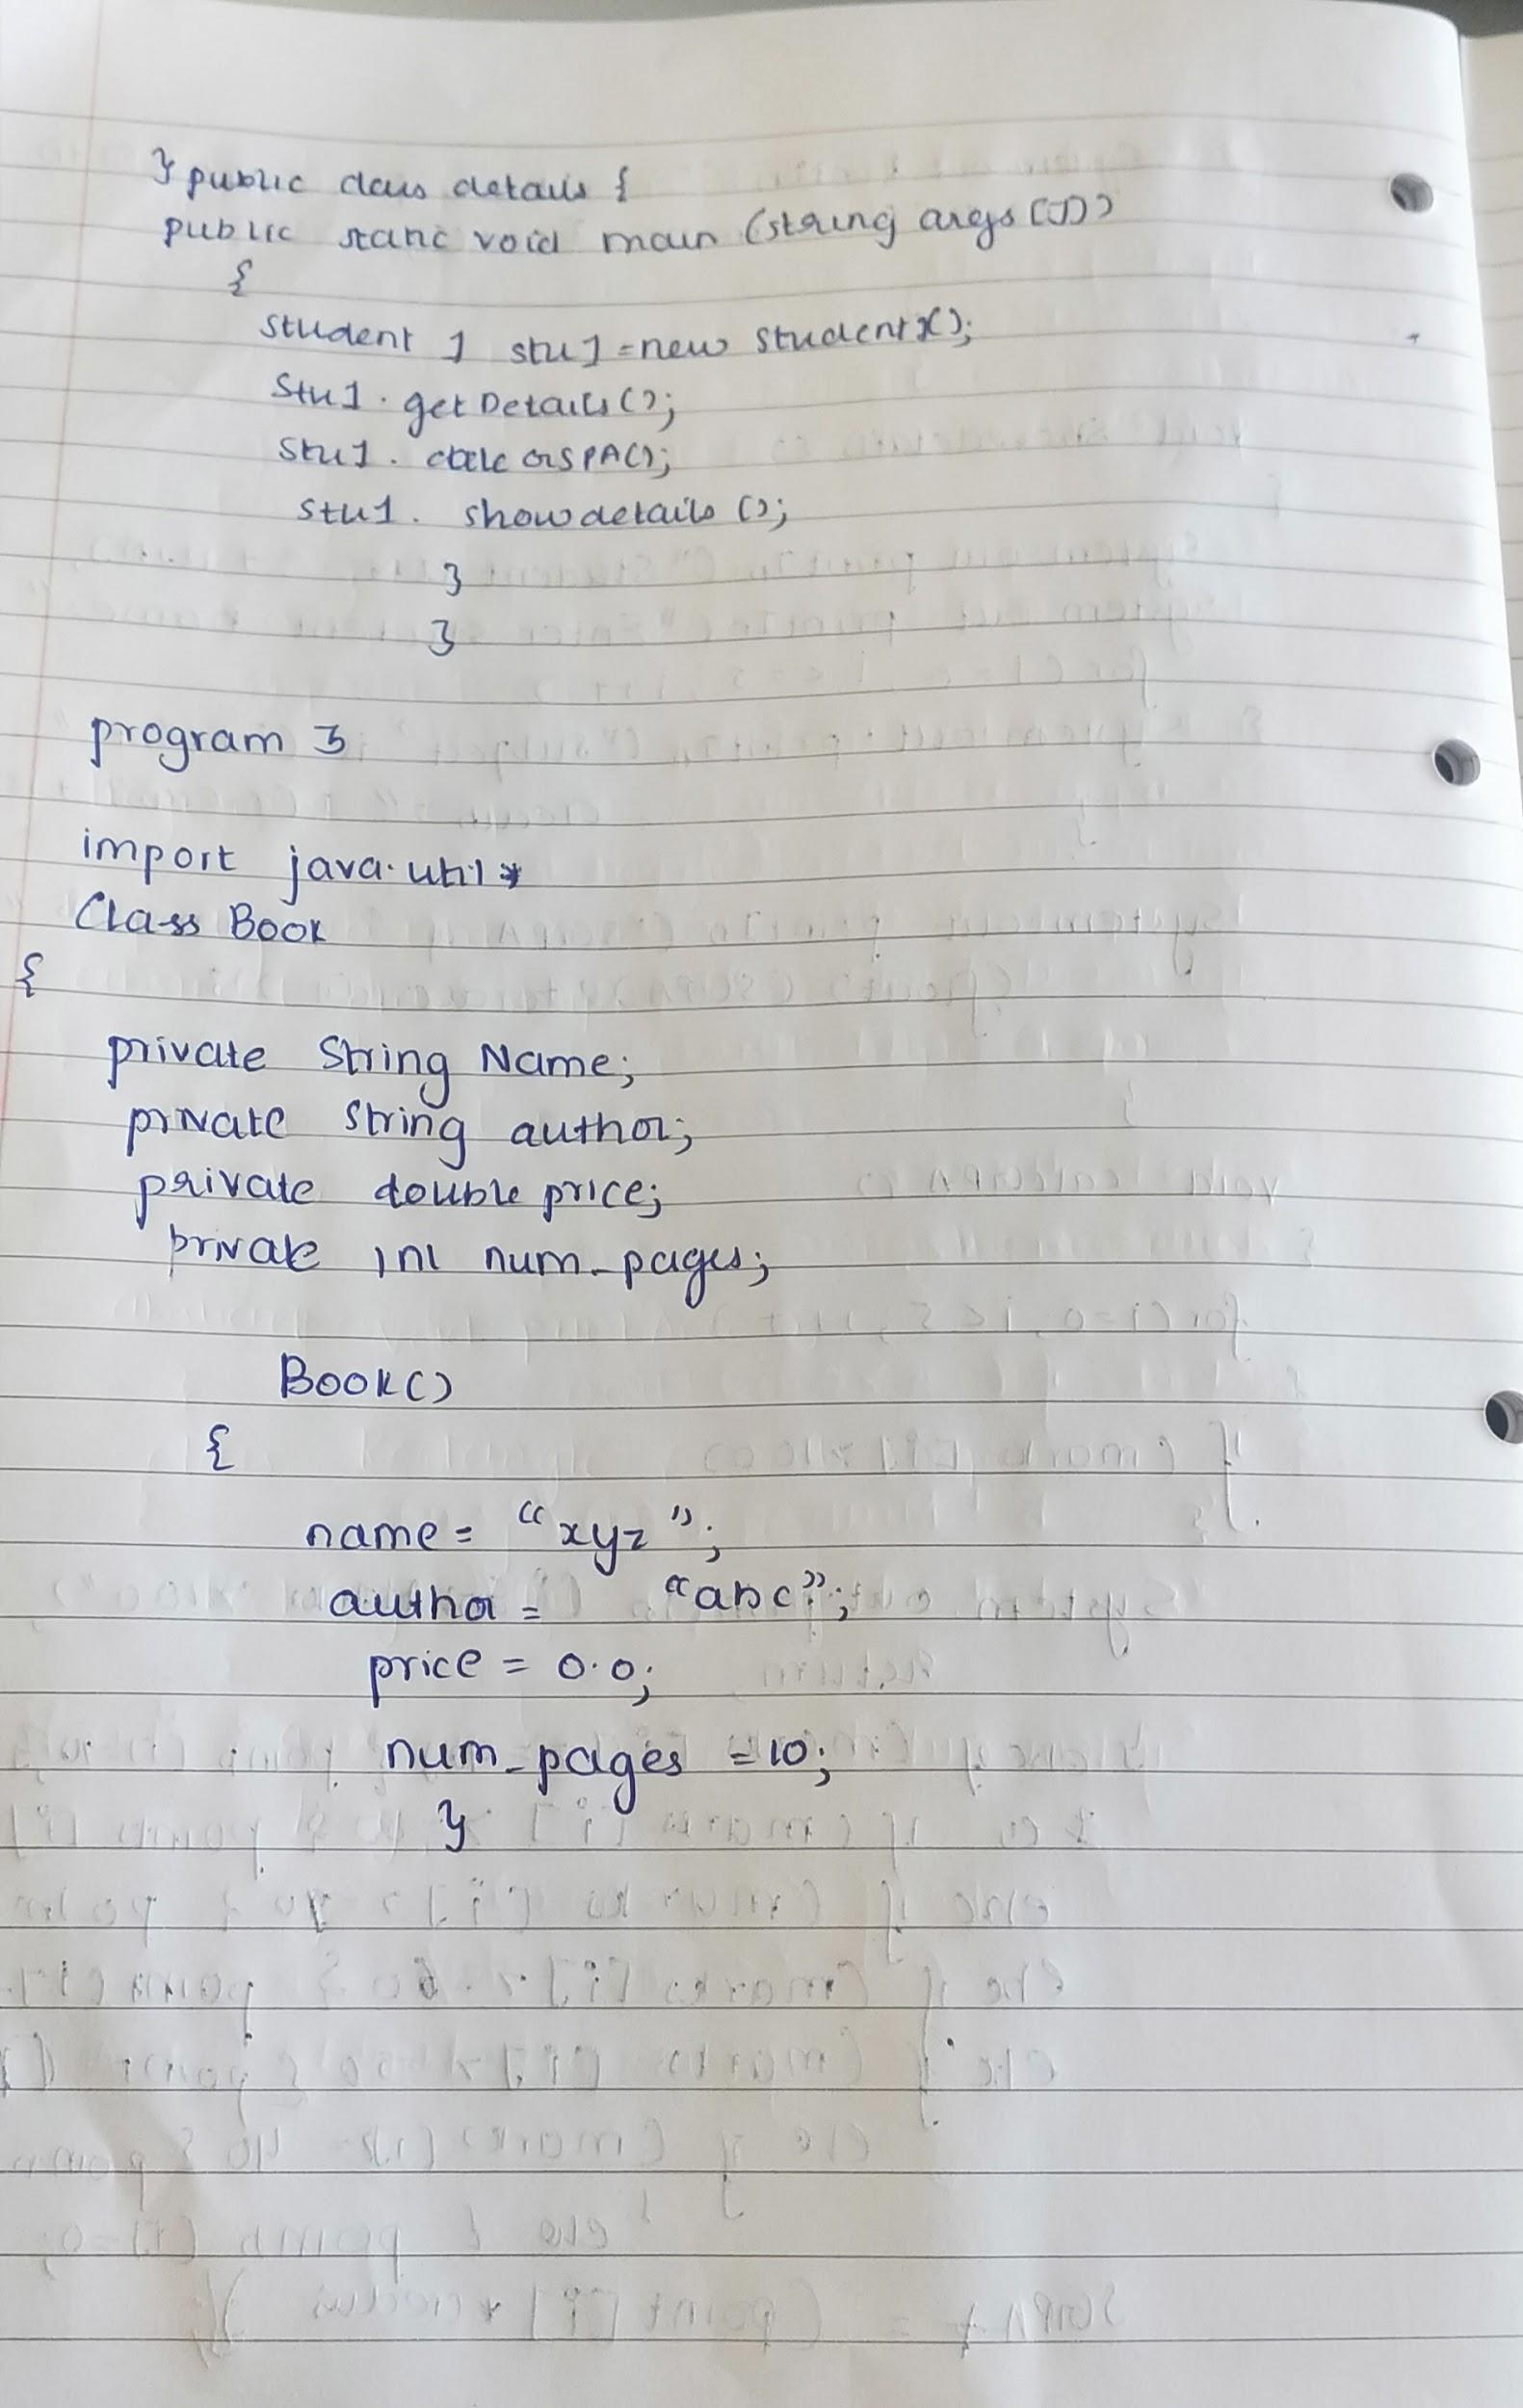 } public class details {
public static void main (string args [])
{
student 1 stu1 = new student1();
Stu1. getDetails();
Stu1. calc SGPA();
Stu1. showdetails ();
}
}
program 3
import java.util*
Class Book
{
private String Name;
private String author;
private double price;
private int num_pages;
Book()
{
name = "xyz";
author = "abc";
price = 0.0;
num_pages = 10;
}